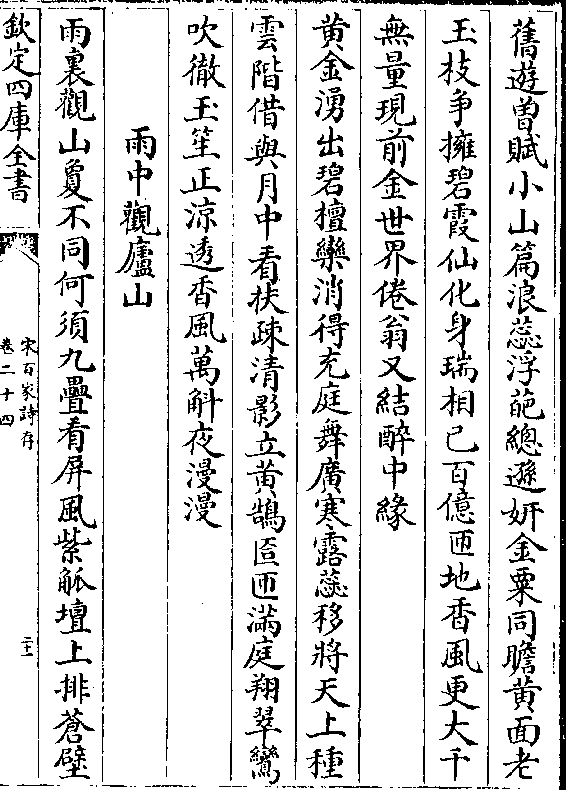 舊遊曽賦小山篇浪蕊浮葩總遜姸金粟同瞻黄面老
玉枝争擁碧霞仙化身瑞相已百億匝地香風更大千
無量現前金世界倦翁又結醉中緣
黄金湧出碧檀欒消得充庭舞廣寒露蕊移將天上種
雲階借與月中看扶疎清影立黄鵠匼匝滿庭翔翠鸞
吹徹玉笙正凉透香風萬斛夜漫漫
雨中觀廬山
雨裏觀山夐不同何須九疊看屏風紫觚壇上排蒼壁
欽定四庫全書
宋百家詩存
卷二十四